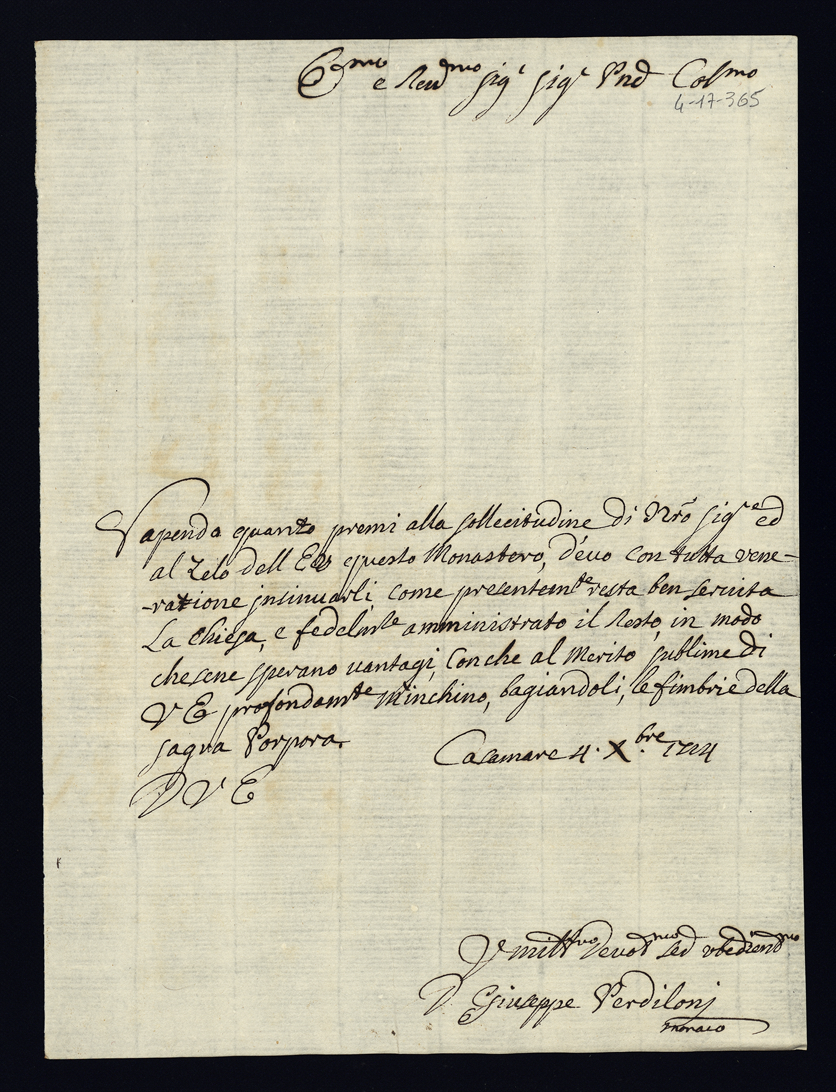 E.mo e Reu.mo Sig.r Sig.r Pnē Col.mo
4-17-365
Sapendo quanto premi alla sollecitudine di Nrō Sig.re ed
al Zelo dell' E. questo Monastero, deuo con tutta vene-
-ratione insinuarli, come presentem.te resta ben seruita
La Chiesa, e fedelm.te amministrato il Resto, in modo
che sene sperano vantagi, Con che al Merito sublime di
V E profondam.te M'inchino, bagiandoli, le fimbrie della
sagra Porpora.
Casamare 4. X.bre 1714
D V E
Vmill.mo Deuot.mo ed obedien.mo
D Giuseppe Verdilonj
monaco